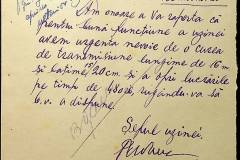 Am onoare a Vă raporta că
pentru bună funcțiune a uzinei
avem urgentă nevoie de o curea
de transmitiune lungime de 16 m
și lățime 15/20 cm și a opri lucrările
pe timp de ore, rugându-vă să
b.v. a dispune.
Șeful uzinei.